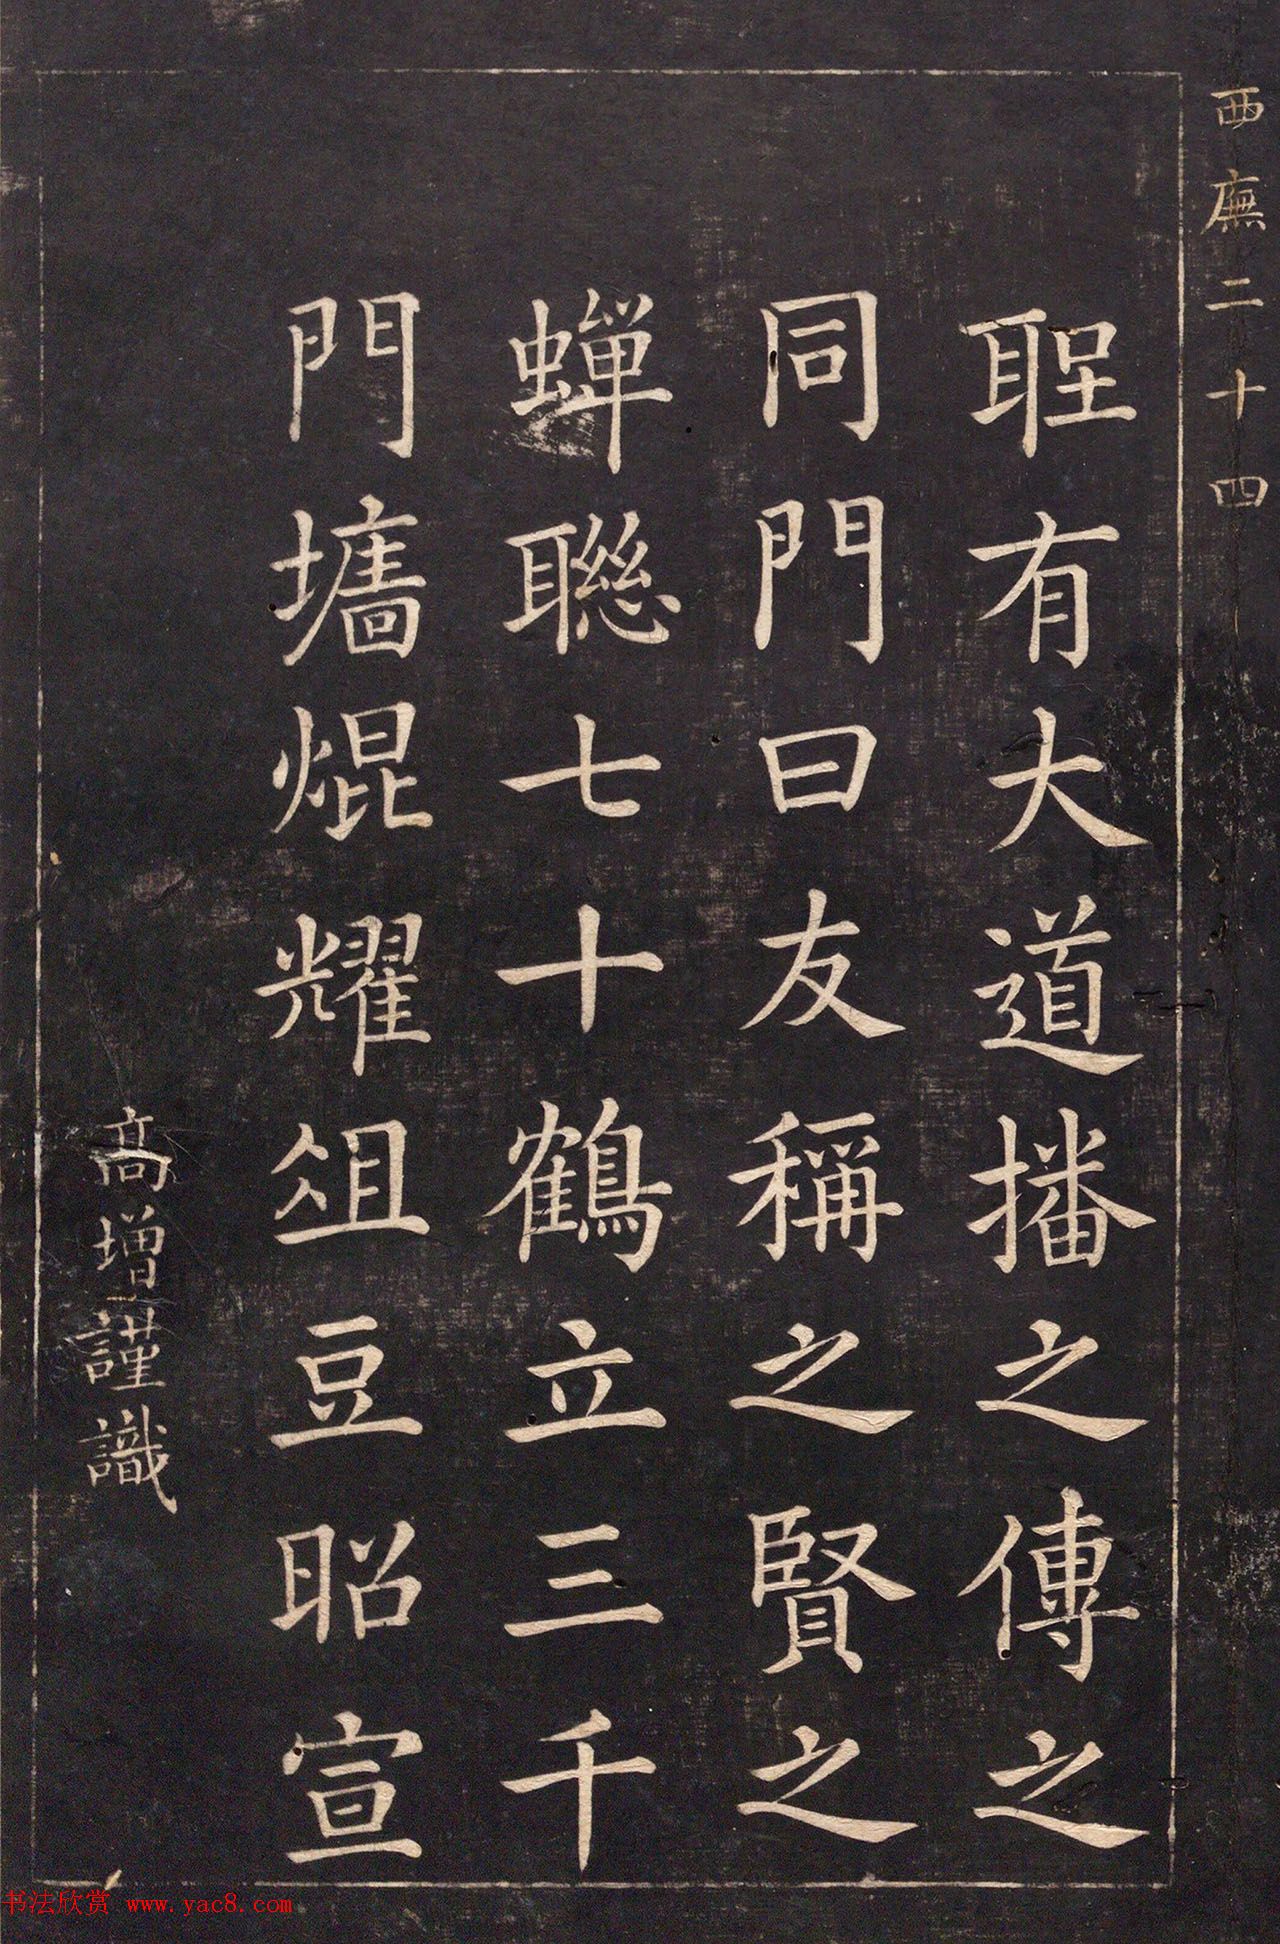 西廡二十四
聖有大道播之傳之
同門曰友稱之賢之
蟬聮七十鶴立三千
門墻焜耀俎豆昭宣
高增謹識
书法欣赏 www.yac8.com